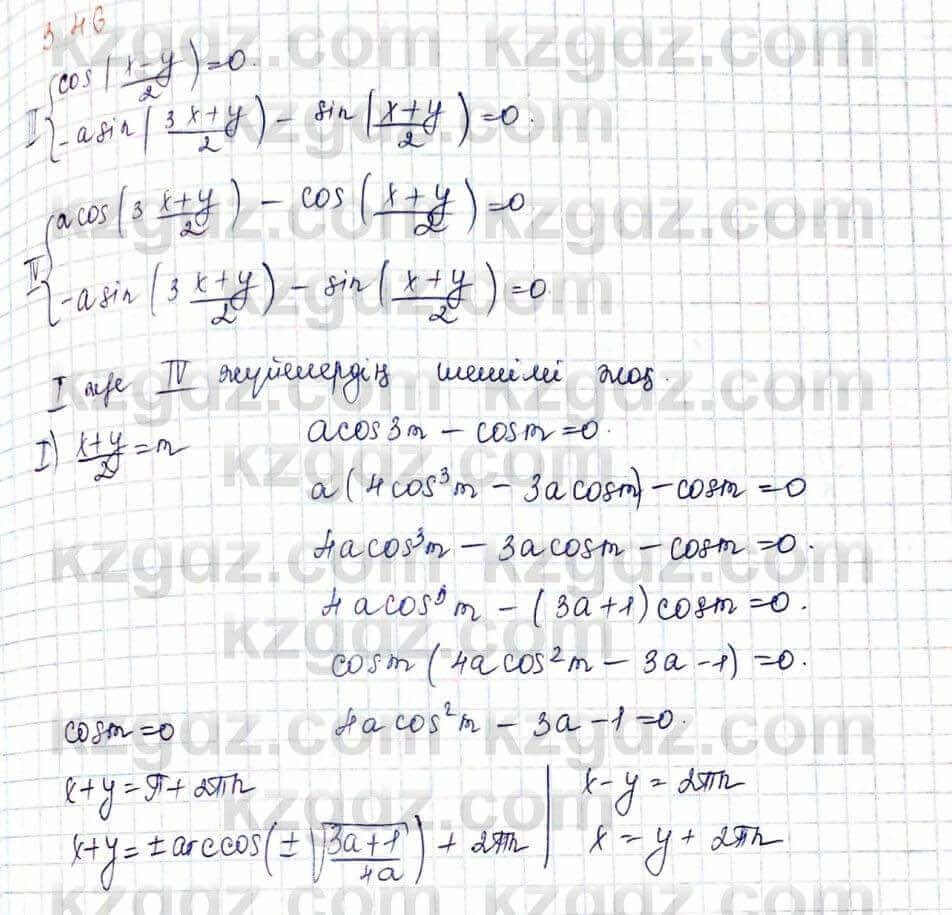 3.46
II { cos(x-y/2)=0.
-a sin(3 x+y/2) - sin(x+y/2)=0.
IV { a cos(3 x+y/2) - cos(x+y/2)=0
-a sin(3 x+y/2) - sin(x+y/2)=0.
I және IV жүйелердің шешімі жоқ.
I) x+y/2=m a cos3m - cosm=0.
a(4cos³m - 3a cosm) - cosm=0
4a cos³m - 3a cosm - cosm=0.
4a cos³m - (3a+1) cosm=0.
cosm(4a cos²m - 3a - 1)=0.
cosm=0 4a cos²m - 3a - 1=0.
x+y=π+2πn | x-y=2πn
x+y=±arccos(±√(3a+1/4a))+2πn | x=y+2πn
kzgdz.com